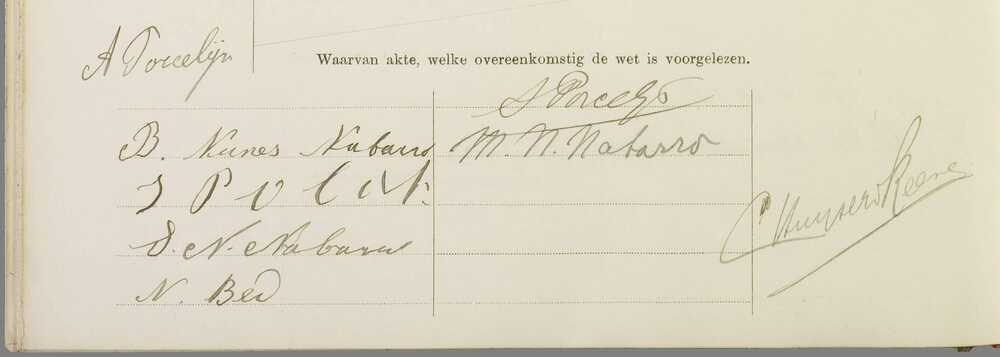 A Porcelijn
Waarvan akte, welke overeenkomstig de wet is voorgelezen.
S Porcelijn
B. Nunes Nabarro
M. N. Nabarro
S Polak
D. N. Nabarro
N. Bed